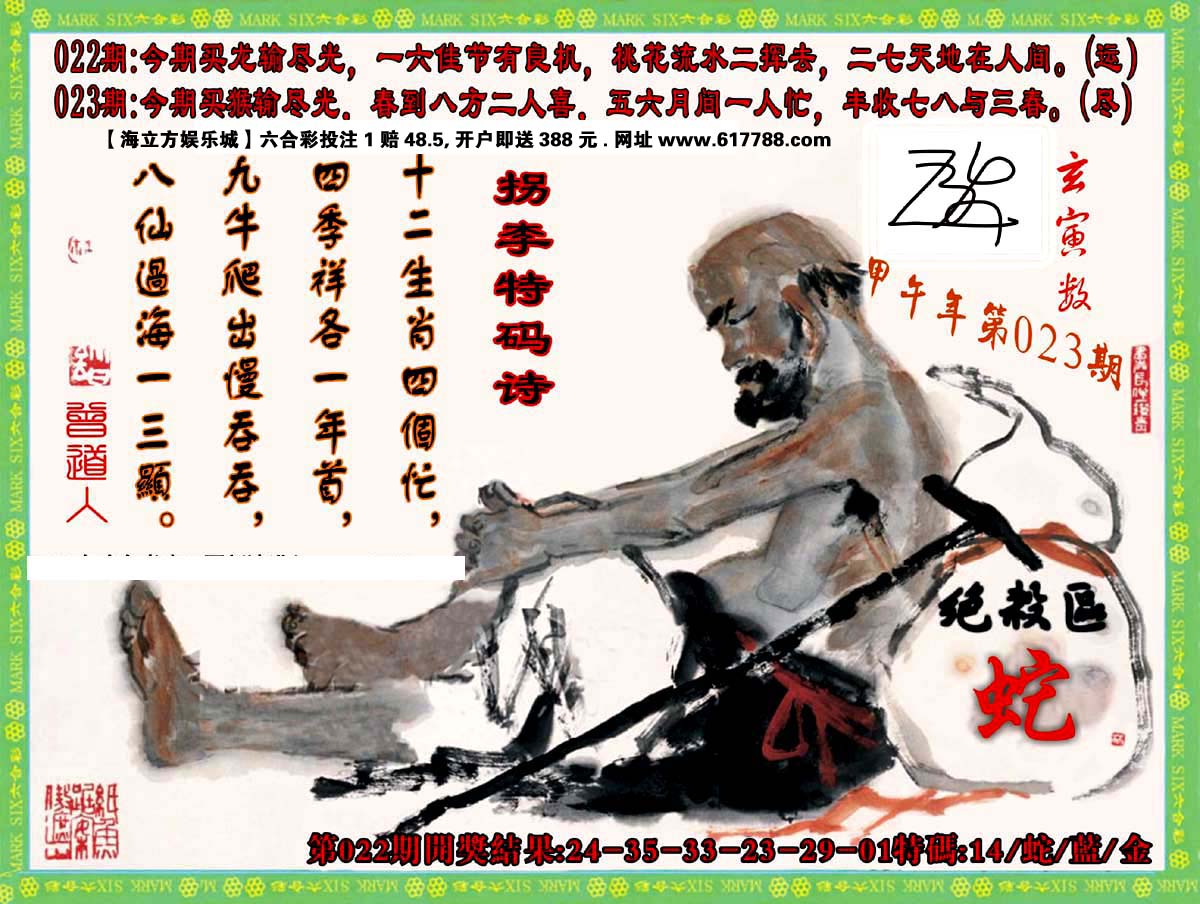 MARK SIX六合彩
022期:今期买龙输尽光，一六佳节有良机，桃花流水二挥去，二七天地在人间。(运)
023期:今期买猴输尽光．春到八方二人喜．五六月间一人忙，丰收七八与三春。(尽)
【海立方娱乐城】六合彩投注 1 赔 48.5, 开户即送 388 元 . 网址 www.617788.com
玄寅数
甲午年第023期
拐李特码诗
十二生肖四個忙，
四季祥各一年首，
九牛爬出慢吞吞，
八仙過海一三顯。
曾道人
绝殺區
蛇
第022期開獎結果:24-35-33-23-29-01特碼:14/蛇/藍/金